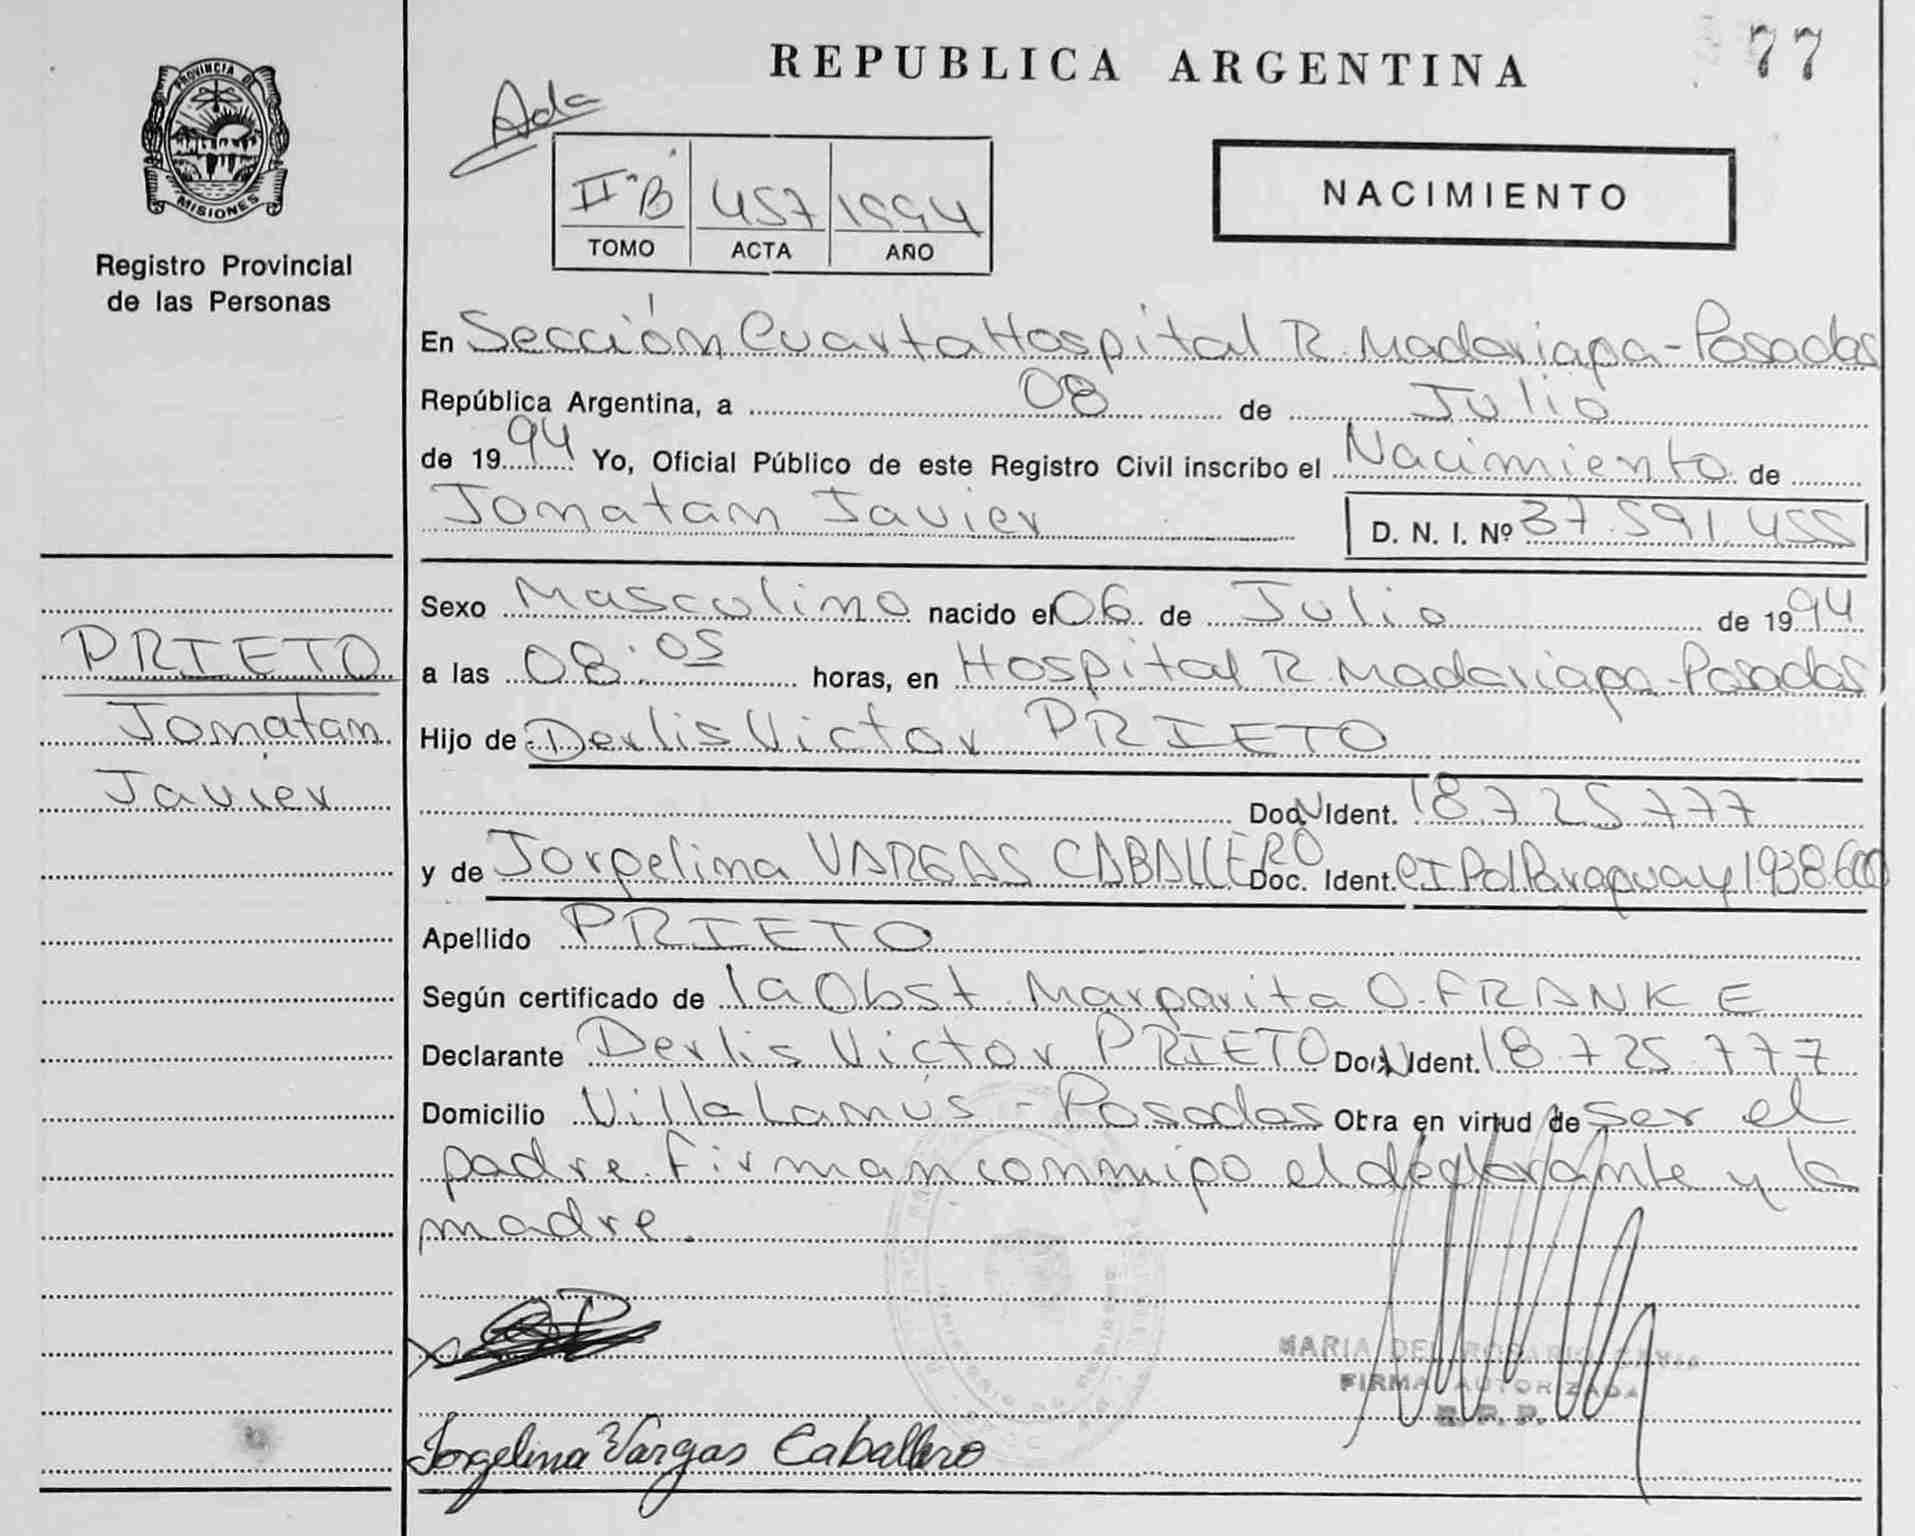 77
REPUBLICA ARGENTINA
PROVINCIA DE
MISIONES
Registro Provincial
de las Personas
Ada
II°B 457 1994
TOMO ACTA AÑO
NACIMIENTO
En Sección Cuarta Hospital R. Madariaga - Posadas
República Argentina, a 08 de Julio
de 1994 Yo, Oficial Público de este Registro Civil inscribo el Nacimiento de
Jonatan Javier D. N. I. Nº 37.591.455
Sexo Masculino nacido el 06 de Julio de 1994
a las 08:05 horas, en Hospital R. Madariaga - Posadas
Hijo de Derlis Victor PRIETO
Doc. N Ident. 18.725.777
y de Jorgelina VARGAS CABALLERO Doc. Ident. CI Pol Paraguay 1.938.600
Apellido PRIETO
Según certificado de la Obst. Margarita O. FRANKE
Declarante Derlis Victor PRIETO Doc. N Ident. 18.725.777
Domicilio Villa Lanús - Posadas Obra en virtud de ser el
padre. Firman conmigo el declarante y la
madre.
PRIETO
Jonatan
Javier
MARIA DEL ROSARIO
FIRMA AUTORIZADA
R. P. P.
Jorgelina Vargas Caballero